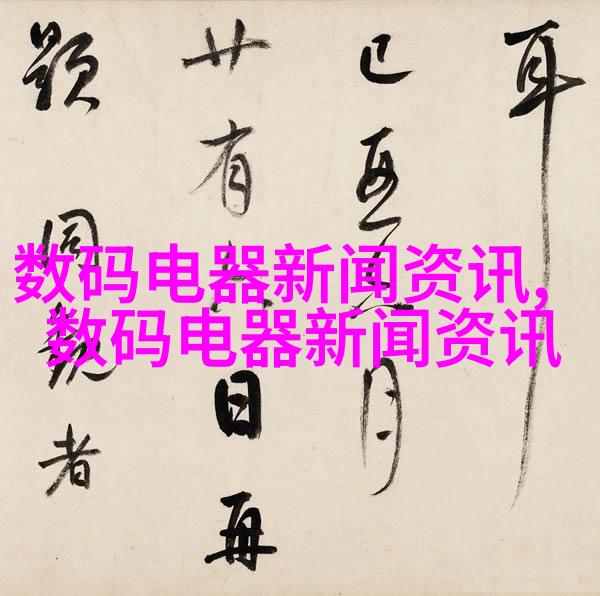 耳
已月
廿有日再
題同觀者
数码电器新闻资讯,
数码电器新闻资讯